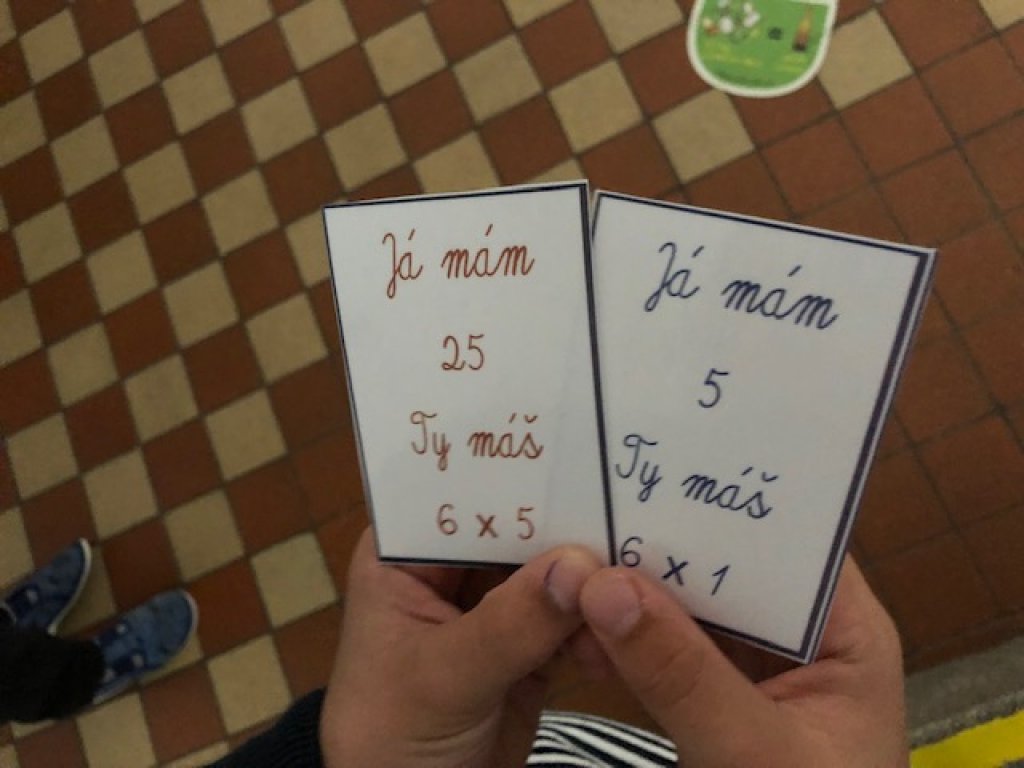 Já mám
25
Ty máš
6 x 5
Já mám
5
Ty máš
6 x 1